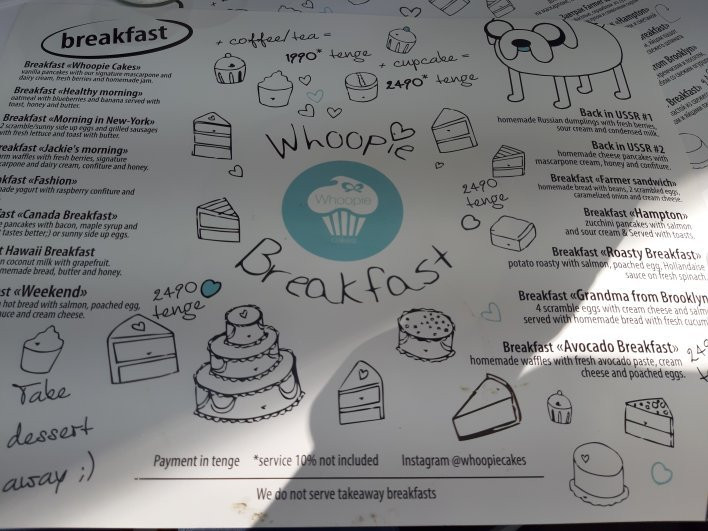 breakfast
+ coffee/tea =
1990* tenge
+ cupcake =
2490* tenge
Breakfast «Whoopie Cakes»
vanilla pancakes with our signature mascarpone and
dairy cream, fresh berries and homemade jam.
Breakfast «Healthy morning»
oatmeal with blueberries and banana served with
toast, honey and butter.
Breakfast «Morning in New-York»
2 scramble/sunny side up eggs and grilled sausages
with fresh lettuce and toast with butter.
«Jackie's morning»
waffles with fresh berries, signature
and dairy cream, confiture and honey.
«Fashion»
yogurt with raspberry confiture and
«Canada Breakfast»
pancakes with bacon, maple syrup and
tastes better;) or sunny side up eggs.
Hawaii Breakfast
on coconut milk with grapefruit.
bread, butter and honey.
«Weekend»
hot bread with salmon, poached egg,
and cream cheese.
2490
tenge
Take
dessert
away ;)
Whoopie
Whoopie
Breakfast
Back in USSR #1
homemade Russian dumplings with fresh berries,
sour cream and condensed milk.
Back in USSR #2
homemade cheese pancakes with
mascarpone cream, honey and confiture.
2490
tenge
Breakfast «Farmer sandwich»
homemade bread with beans, 2 scrambled eggs,
caramelized onion and cream cheese.
Breakfast «Hampton»
zucchini pancakes with salmon
and sour cream & Served with toasts.
Breakfast «Roasty Breakfast»
potato roasty with salmon, poached egg, Hollandaise
sauce on fresh spinach.
Breakfast «Grandma from Brooklyn
4 scramble eggs with cream cheese and
served with homemade bread with fresh
Breakfast «Avocado Breakfast»
homemade waffles with fresh avocado paste, cream
cheese and poached eggs.
Payment in tenge *service 10% not included Instagram @whoopiecakes
We do not serve takeaway breakfasts